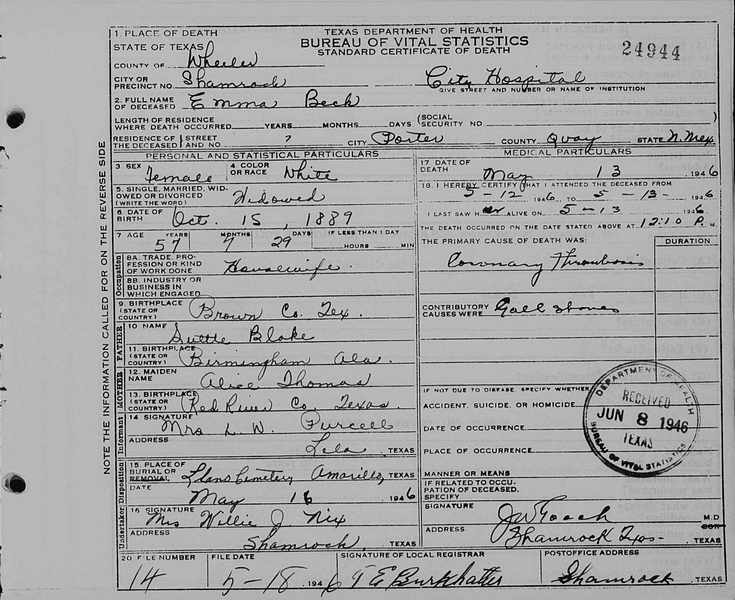 TEXAS DEPARTMENT OF HEALTH
BUREAU OF VITAL STATISTICS
STANDARD CERTIFICATE OF DEATH
24944
1 PLACE OF DEATH
STATE OF TEXAS
COUNTY OF Wheeler
CITY OR PRECINCT NO. Shamrock
City Hospital
GIVE STREET AND NUMBER OR NAME OF INSTITUTION
2. FULL NAME OF DECEASED Emma Beck
LENGTH OF RESIDENCE WHERE DEATH OCCURRED YEARS MONTHS DAYS (SOCIAL SECURITY NO.
RESIDENCE OF THE DECEASED (STREET AND NO. ? CITY Porter COUNTY Quay STATE N. Mex.
PERSONAL AND STATISTICAL PARTICULARS
3 SEX Female 4 COLOR OR RACE White
5. SINGLE, MARRIED, WIDOWED OR DIVORCED (WRITE THE WORD) Widowed
6 DATE OF BIRTH Oct. 15, 1889
7 AGE YEARS MONTHS DAYS IF LESS THAN 1 DAY
57 7 29 HOURS MIN
Occupation
8A. TRADE, PROFESSION OR KIND OF WORK DONE Housewife
8B. INDUSTRY OR BUSINESS IN WHICH ENGAGED
9. BIRTHPLACE (STATE OR COUNTRY) Brown Co. Tex.
FATHER
10 NAME Suttle Blake
11. BIRTHPLACE (STATE OR COUNTRY) Birmingham Ala.
MOTHER
12. MAIDEN NAME Alice Thomas
13. BIRTHPLACE (STATE OR COUNTRY) Red River Co. Texas.
Informant
14 SIGNATURE Mrs L. W. Purcell
ADDRESS Lela, TEXAS
Disposition
15. PLACE OF BURIAL OR REMOVAL Llano Cemetery Amarillo, TEXAS
DATE May 16 1946
Undertaker
16 SIGNATURE Mrs Willie J. Nix
ADDRESS Shamrock TEXAS
MEDICAL PARTICULARS
17 DATE OF DEATH May 13 1946
18. I HEREBY CERTIFY THAT I ATTENDED THE DECEASED FROM
5-12 1946 TO 5-13- 1946
I LAST SAW H er ALIVE ON 5-13 1946
THE DEATH OCCURRED ON THE DATE STATED ABOVE AT 12:10 P. M.
THE PRIMARY CAUSE OF DEATH WAS: DURATION
Coronary Thrombosis
CONTRIBUTORY CAUSES WERE Gall stones
IF NOT DUE TO DISEASE, SPECIFY WHETHER
ACCIDENT, SUICIDE, OR HOMICIDE
DATE OF OCCURRENCE
PLACE OF OCCURRENCE
MANNER OR MEANS
IF RELATED TO OCCUPATION OF DECEASED, SPECIFY
DEPARTMENT OF HEALTH
RECEIVED
JUN 8 1946
TEXAS
BUREAU OF VITAL STATISTICS
SIGNATURE J W Gooch M.D
ADDRESS Shamrock Texas TEXAS
20 FILE NUMBER FILE DATE SIGNATURE OF LOCAL REGISTRAR POSTOFFICE ADDRESS
14 5-18 1946 T E Burkhalter Shamrock, TEXAS
NOTE THE INFORMATION CALLED FOR ON THE REVERSE SIDE